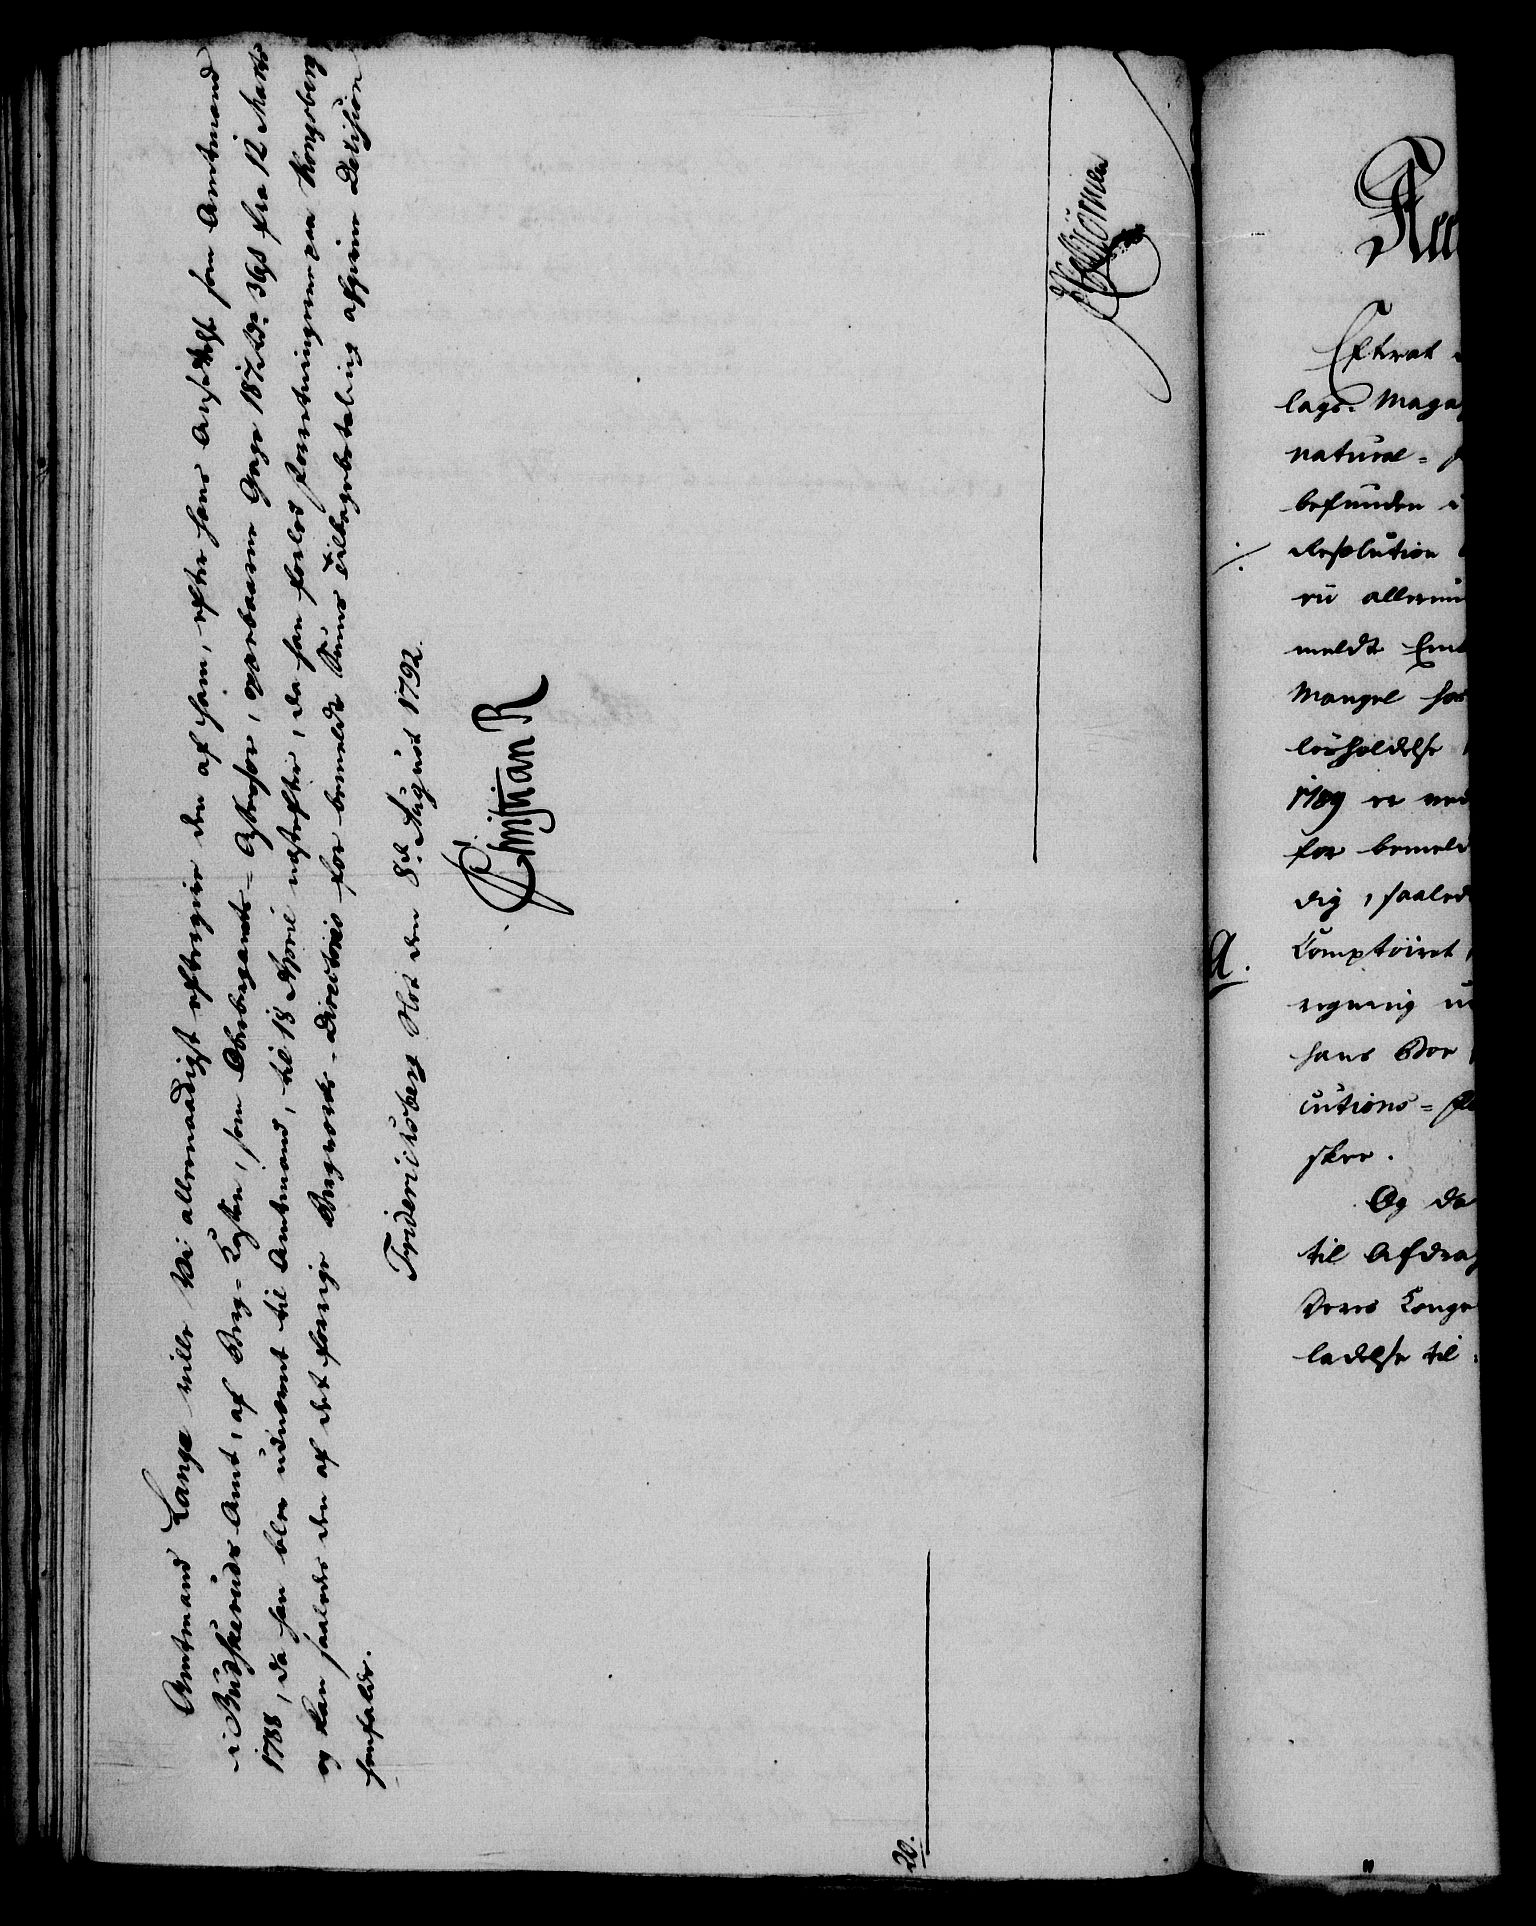 Amtmand Lange ville Vi allernaadigst eftergive den af ham, efter hans Ansættelse som Amtmand
i Budskeruds Amt, af Berg-Cassen, som Oberbergamts-Assessor, oppebaarne Gage 187 rdr 36 s fra 12 Marts
1788, da han blev udnævnt til Amtmand, til 18 April næstefter, da han forlod Forretningerne paa Kongsberg
og kan saaledes den af det forrige Bergverks-Directorio for bemeldte Sums Tilbagebetaling afgivne Decision
henfalde.
Friderichsberg Slot den 8de August 1792.
Christian R
20.
Efterat
lags Maga
natural=
befunden
Resolution
meldte
Mangel
losholdelse
1789 er
for bemeld
dig, saaled
A.
Comptoiret
regning
hans Boe
cutions=
skee.
Og da
til Afdrag
Deres Konge
ladelse til